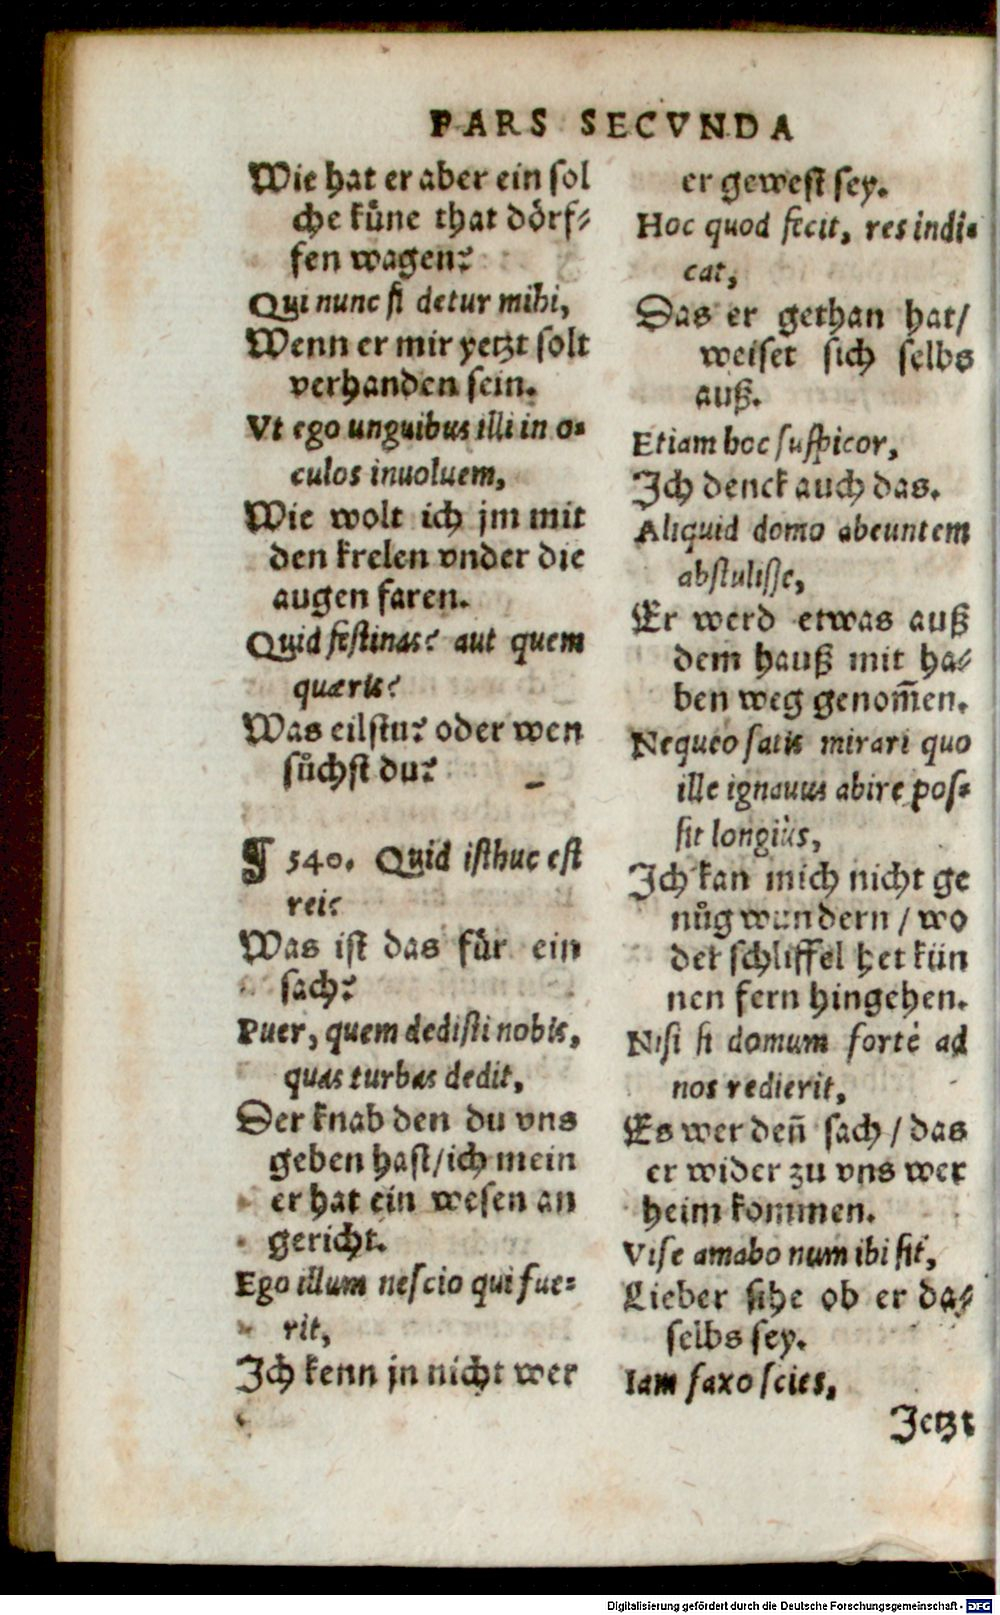 PARS SECVNDA
Wie hat er aber ein sol
che kuͤne that doͤrf⸗
fen wagen?
Qui nunc si detur mihi,
Wenn er mir yetzt solt
verhanden sein.
Vt ego unguibus illi in o-
culos inuoluem,
Wie wolt ich jm mit
den krelen vnder die
augen faren.
Quid festinas? aut quem
quæris?
Was eilstu? oder wen
suͤchst du?
¶ 540. Quid isthuc est
rei?
Was ist das fuͤr ein
sach?
Puer, quem dedisti nobis,
quas turbas dedit,
Der knab den du vns
geben hast/ich mein
er hat ein wesen an
gericht.
Ego illum nescio qui fue-
rit,
Ich kenn jn nicht wer
er gewest sey.
Hoc quod fecit, res indi-
cat,
Das er gethan hat/
weiset sich selbs
auß.
Etiam hoc suspicor,
Ich denck auch das.
Aliquid domo abeuntem
abstulisse,
Er werd etwas auß
dem hauß mit ha⸗
ben weg genom̃en.
Nequeo satis mirari quo
ille ignauus abire pos-
sit longiùs,
Ich kan mich nicht ge
nuͦg wundern / wo
der schliffel het kün
nen fern hingehen.
Nisi si domum fortè ad
nos redierit,
Es wer deñ sach / das
er wider zu vns wer
heim kommen.
Vise amabo num ibi sit,
Lieber sihe ob er da⸗
selbs sey.
Iam faxo scies,
Jetzt
Digitalisierung gefördert durch die Deutsche Forschungsgemeinschaft - DFG